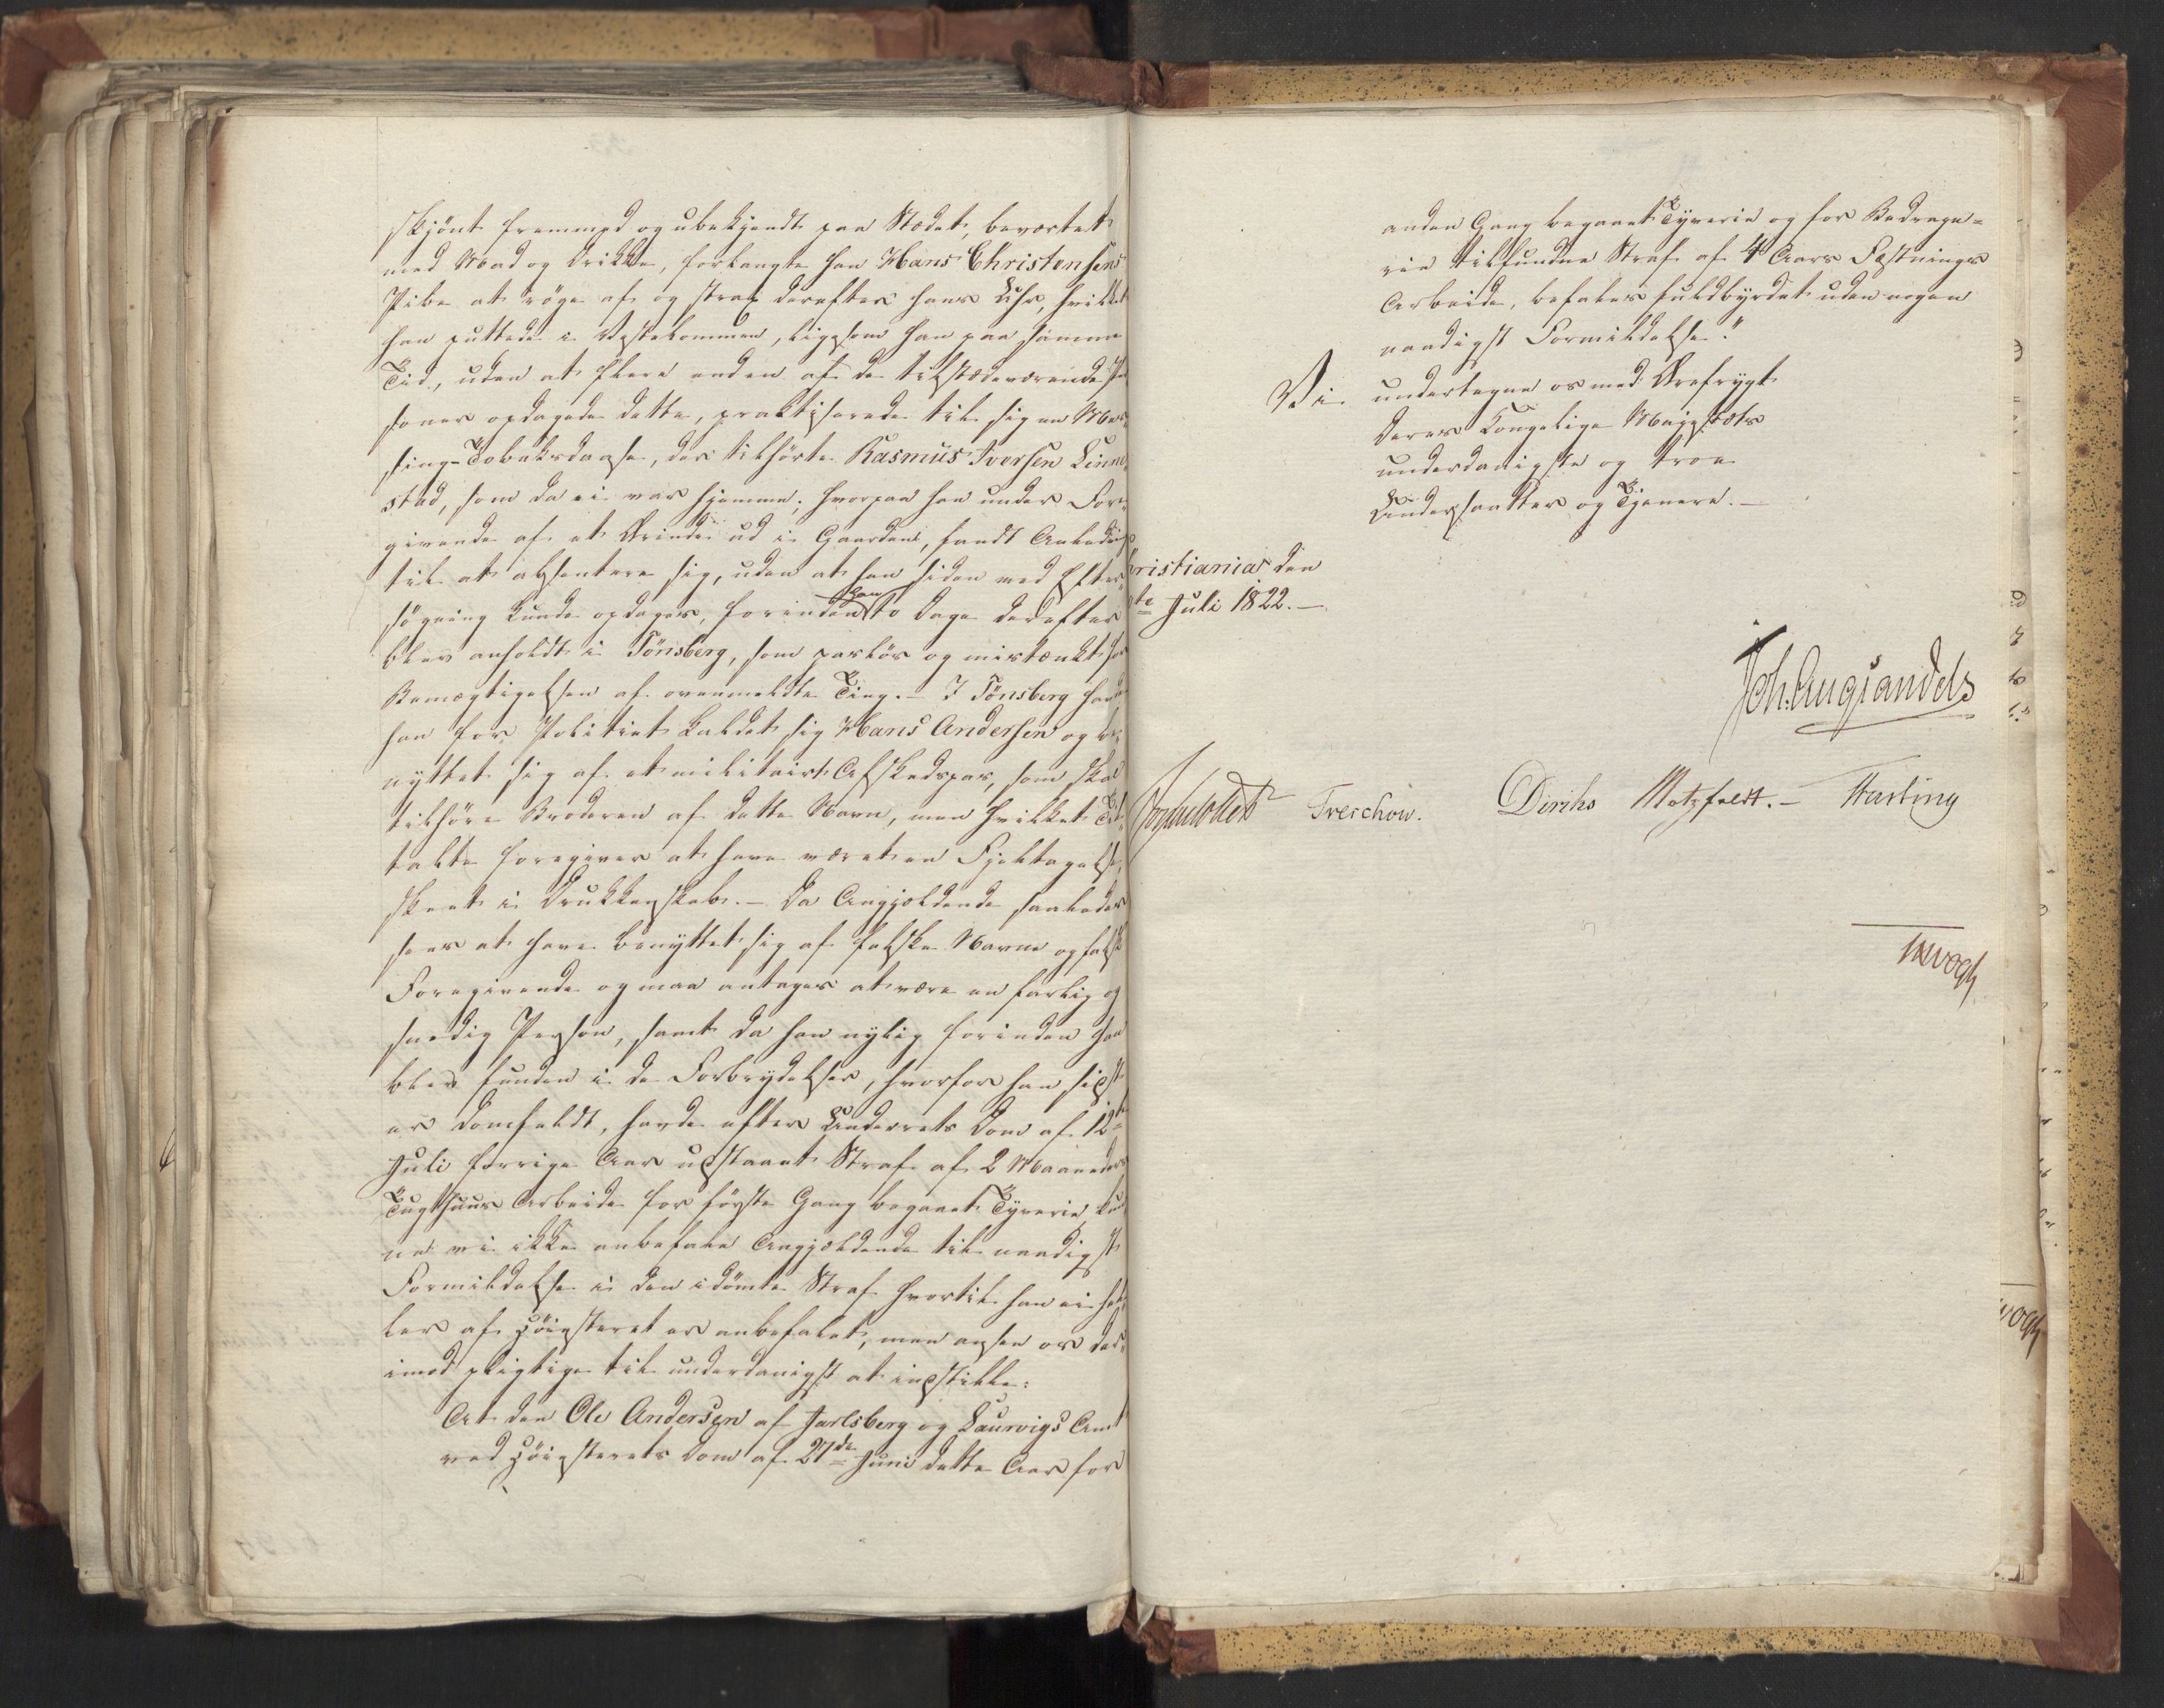 skjönt fremmed og ubekjendt paa Stædet, beværtet
med Mad og Drikke, forlangte han Hans Christensens
Pibe at röge af og strax derefter hans Uhr, hvilket
han puttede i Vestelommen, ligesom han paa samme
Tid, uden at flere end en af de tilstædeværende Per
soner opdagede dette, practiserede til sig en Mes¬
sing-Tobaksdaase, der tilhörte Rasmus Iversen Linne¬
stad, som da ei var hjemme; hvorpaa han under Fore¬
givende af et Ærinde ud i Gaarden, fandt Anledning
til at absentere sig, uden at han siden ved Efter¬
sögning kunde opdages, forinden han to Dage derefter
blev anholdt i Tönsberg, som paslös og mistænkt for
Bemægtigelsen af ovenmeldte Ting. – I Tönsberg havde
han for Politiet kaldet sig Hans Andersen og be¬
nyttet sig af et militairt Afskedspas, som skal
tilhöre Broderen af dette Navn, men hvilket Til¬
talte foregiver at have været en Fejltagelse,
skeet i Drukkenskab. – Da Angjældende saaledes
sees at have benyttet sig af falske Navne og falsk
Foregivende og maa antages at være en farlig og
snedig Person, samt da han nylig forinden han
blev funden i de Forbrydelser, hvorfor han sidst
er domfældt, havde efter Underrets Dom af 12te
Juli forrige Aar udstaaet Straf af 2 Maaneders
Tugthuus Arbeide for förste Gang begaaet Tyverie, kun¬
ne vi ikke anbefale Angjældende til naadigst
Formildelse i den idömte Straf hvortil han ei hel¬
ler af Höiesteret er anbefalet, men ansee os der¬
imod pligtige til underdanigst at indstille:
At den Ole Andersen af Jarlsberg og Laurvigs Amt
ved Höiesterets Dom af 27de Juni dette Aar for
anden Gang begaaet Tyverie og for Bedrage¬
rie tilfundne Straf af 4 Aars Fæstnings
Arbeide, befales fuldbyrdet uden nogen
naadigst Formildelse."
Vi undertegne os med Ærefrygt
Deres Kongelige Majestæts
underdanigste og troe
Undersaatter og Tjenere. –
ristiania den
te Juli 1822. –
Joh. Aug. Sandels
Treschow. Diriks Motzfeldt. – Fasting
wogh